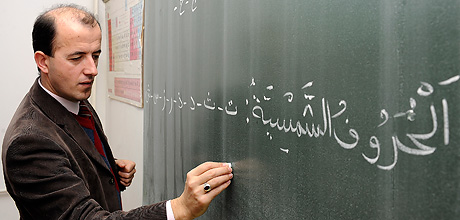 اَلْحُرُوفُ الشَّمْسِيَّةُ: ت - ث - د - ذ - ر - ز - س -